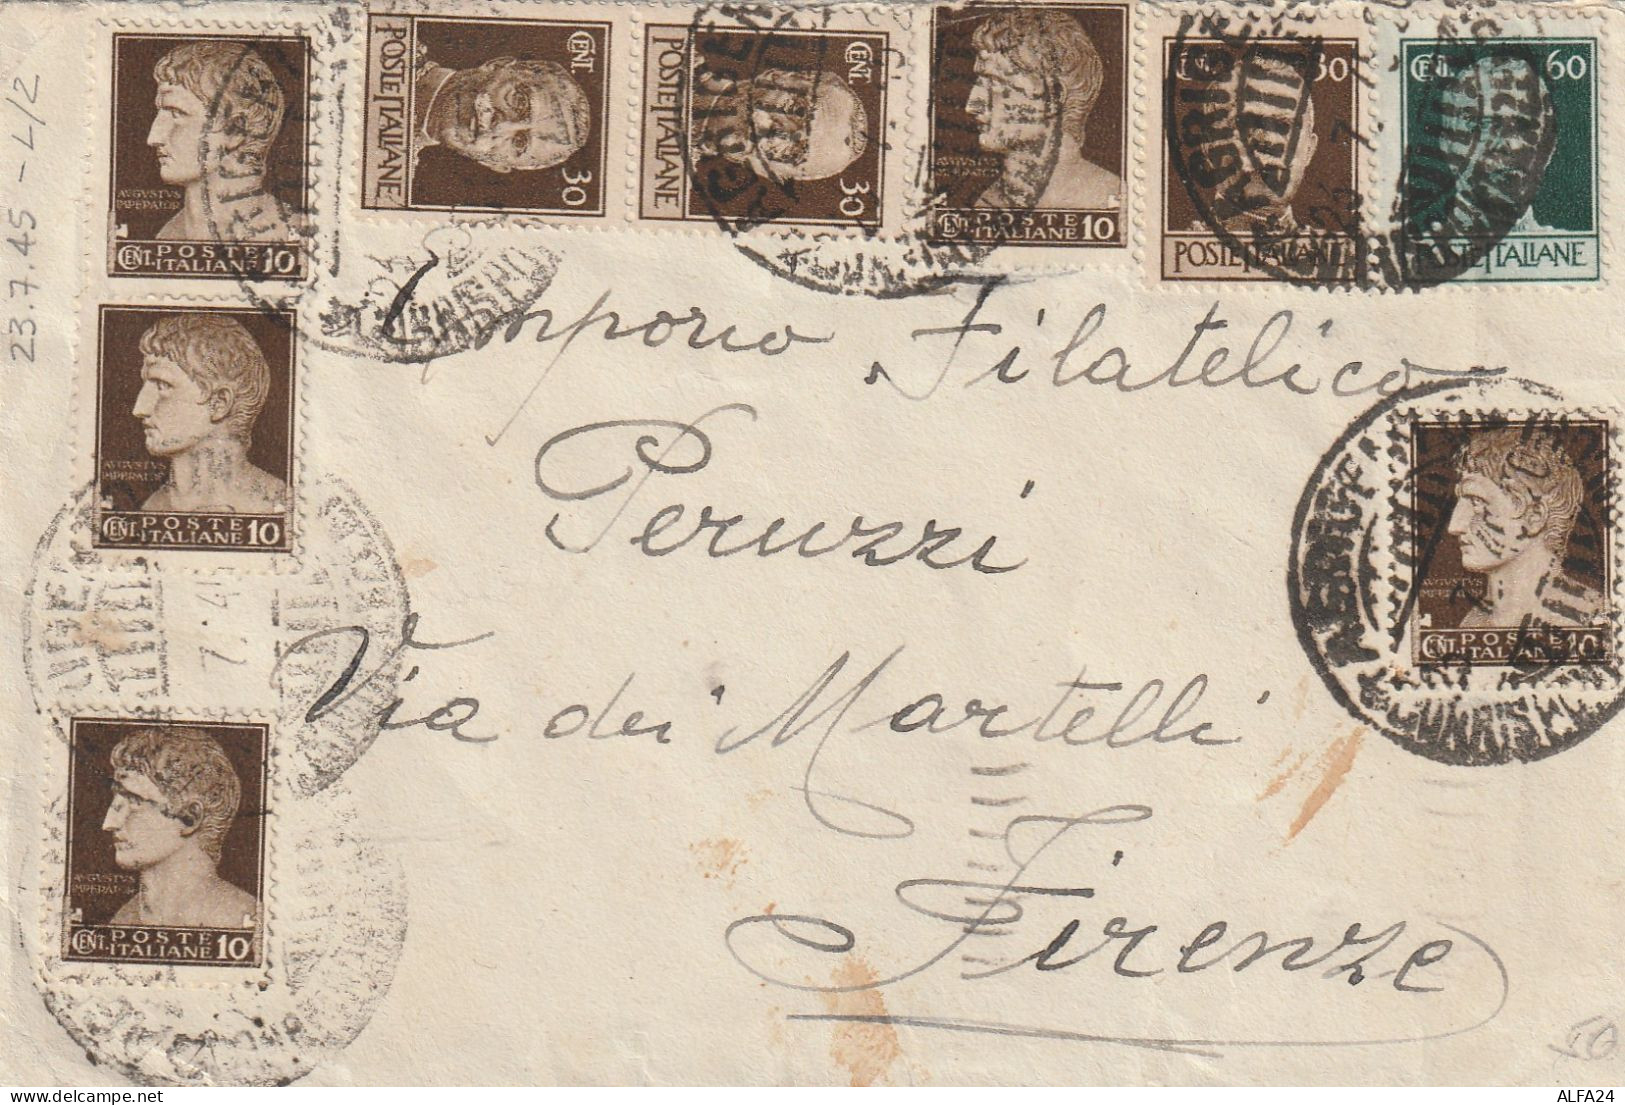 23.7.45 - L/2
AVGVSTVS
IMPERATOR
CENT. POSTE ITALIANE 10
CENT. 30
POSTE ITALIANE
CENT. 30
POSTE ITALIANE
CENT. POSTE ITALIANE 10
CENT. 30
POSTE ITALIANE
CENT. 60
POSTE ITALIANE
AGRIGE
AGRIGE
Emporio Filatelico
AVGVSTVS
IMPERATOR
CENT. POSTE ITALIANE 10
Peruzzi
AVGVSTVS
IMPERATOR
CENT. POSTE ITALIANE 10
Via dei Martelli
AVGVSTVS
IMPERATOR
CENT. POSTE ITALIANE 10
Firenze
50
ALFA24